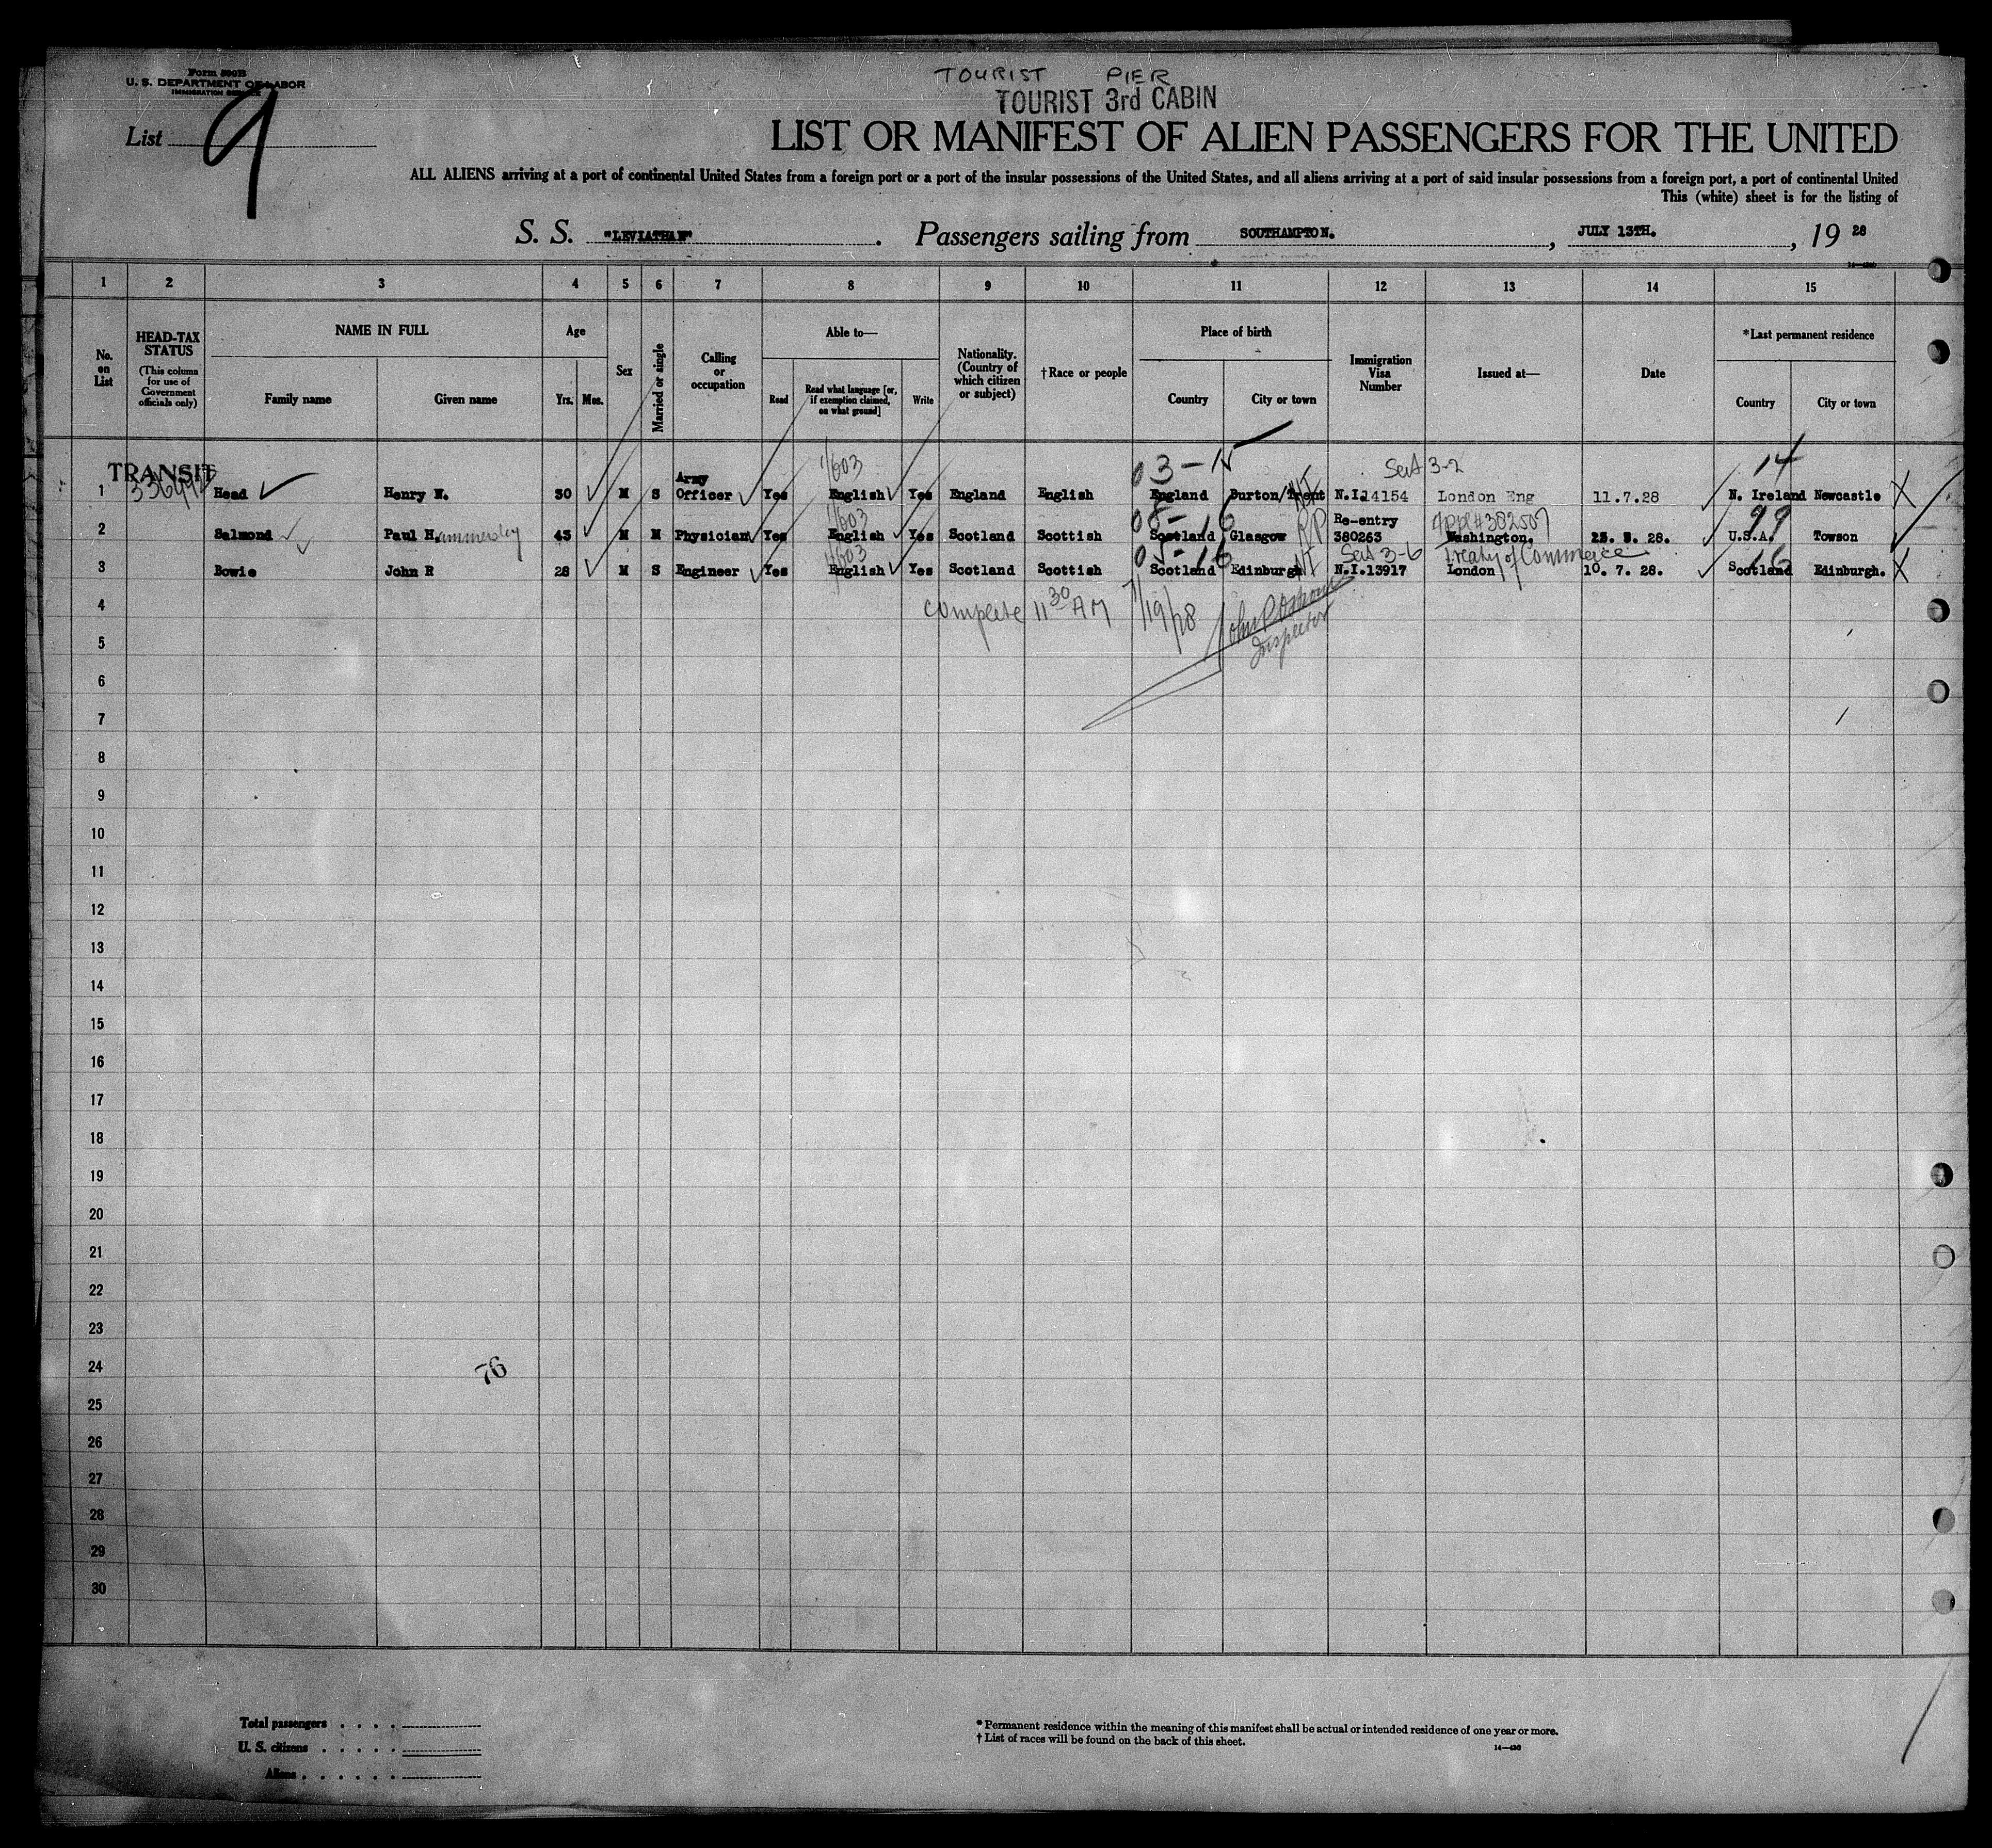 Form 500B
U. S. DEPARTMENT OF LABOR
IMMIGRATION SERVICE
List 9
TOURIST PIER
TOURIST 3rd CABIN
LIST OR MANIFEST OF ALIEN PASSENGERS FOR THE UNITED
ALL ALIENS arriving at a port of continental United States from a foreign port or a port of the insular possessions of the United States, and all aliens arriving at a port of said insular possessions from a foreign port, a port of continental United
This (white) sheet is for the listing of
S. S. "LEVIATHAN". Passengers sailing from SOUTHAMPTON., JULY 13TH., 19 28
1 2 3 4 5 6 7 8 9 10 11 12 13 14 15
No. on List
HEAD-TAX STATUS
(This column for use of Government officials only)
NAME IN FULL
Family name
Given name
Age
Yrs. Mos.
Sex
Married or single
Calling or occupation
Able to—
Read
Read what language [or, if exemption claimed, on what ground]
Write
Nationality. (Country of which citizen or subject)
†Race or people
Place of birth
Country
City or town
Immigration Visa Number
Issued at—
Date
*Last permanent residence
Country
City or town
03-15 Sect 3-2 14
TRANSIT
1 Head Henry N. 30 M S Army Officer Yes English Yes England English England Burton/Trent N.I.14154 London Eng 11.7.28 N. Ireland Newcastle X
05-16 99
2 Salmond Paul Hammersley 43 M M Physician Yes English Yes Scotland Scottish Scotland Glasgow RP Re-entry 380263 Appl # 382507 Washington. 23. 3. 28. U.S.A. Towson
05-16 Sect 3-6 Treaty of Commerce 16
3 Bowie John R 28 M S Engineer Yes English Yes Scotland Scottish Scotland Edinburgh N.I.13917 London 10. 7. 28. Scotland Edinburgh. X
4 complete 11 30 AM 7/19/28
5 Inspector
6
7
8
9
10
11
12
13
14
15
16
17
18
19
20
21
22
23
24 76
25
26
27
28
29
30
Total passengers . . . .
U. S. citizens . . . . .
Aliens . . . . . .
* Permanent residence within the meaning of this manifest shall be actual or intended residence of one year or more.
† List of races will be found on the back of this sheet.
14—430